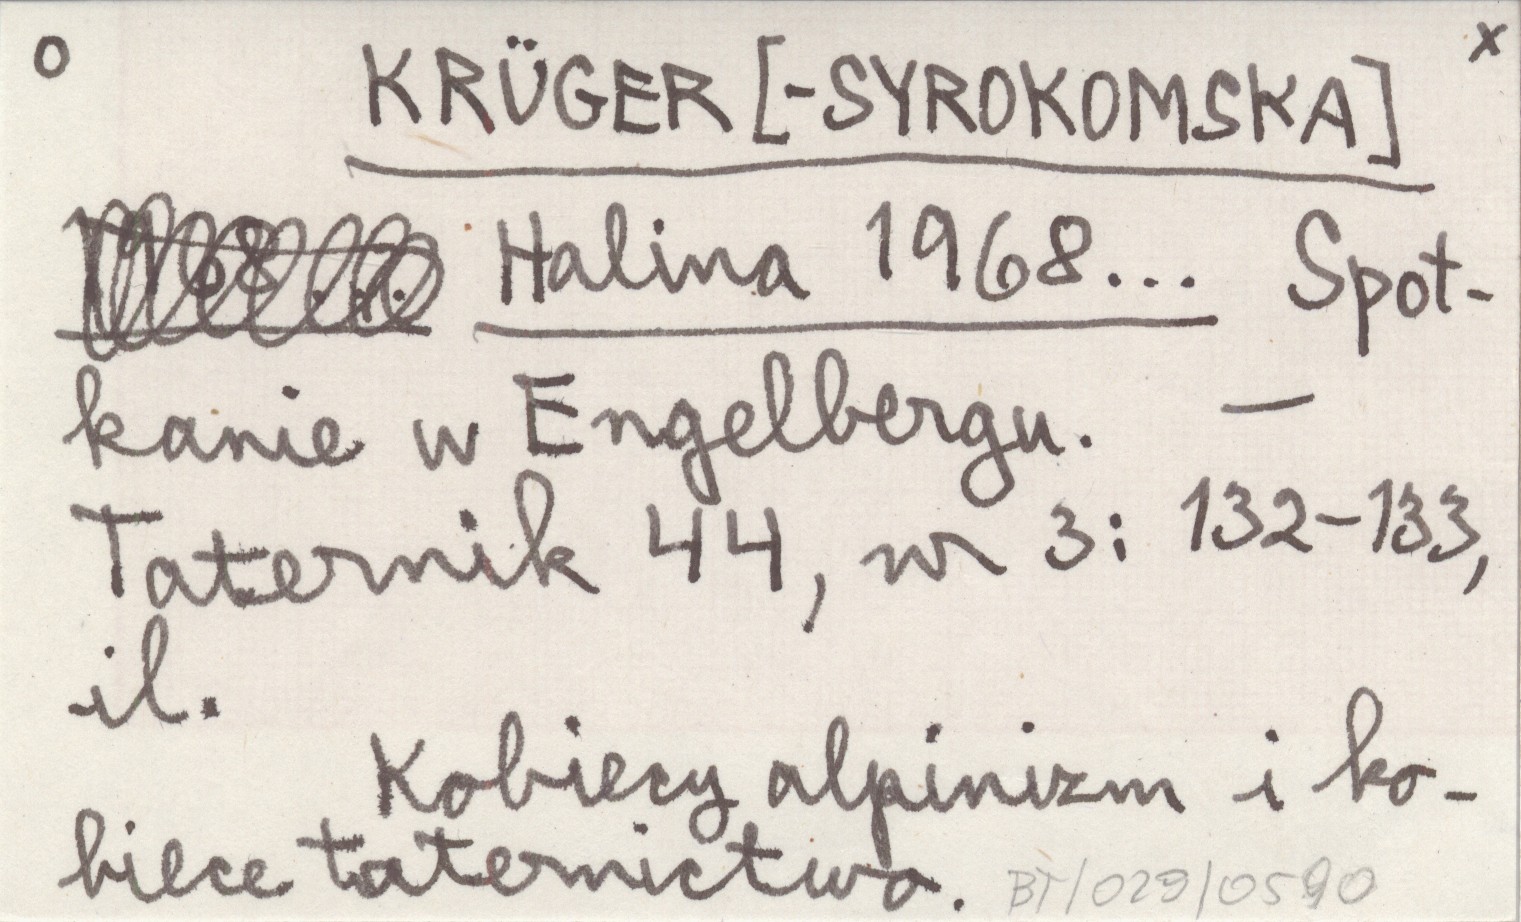 O KRÜGER [-SYROKOMSKA] x
1968... Halina 1968... Spot-
kanie w Engelbergu. —
Taternik 44, nr 3: 132-133,
il.
Kobiecy alpinizm i ko-
biece taternictwo. BT/029/0590